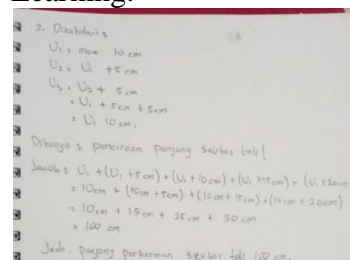 Learning.
2. Diketahui :
U₁ = max 10 cm
U₂ = U₁ + 5 cm
U₃ = U₂ + 5 cm
= U₁ + 5 cm + 5 cm
= U₁ 10 cm.
Ditanya : perkiraan panjang seutas tali!
Jawab : U₁ + (U₁ + 5cm) + (U₁ + 10cm) + (U₁ + 15cm) + (U₁ + 20cm
= 10cm + (10cm + 5cm) + (10cm + 15cm) + (10cm + 20cm)
= 10cm + 15cm + 25cm + 30cm
= 100 cm
Jadi, panjang perkiraan seutas tali 100 cm.